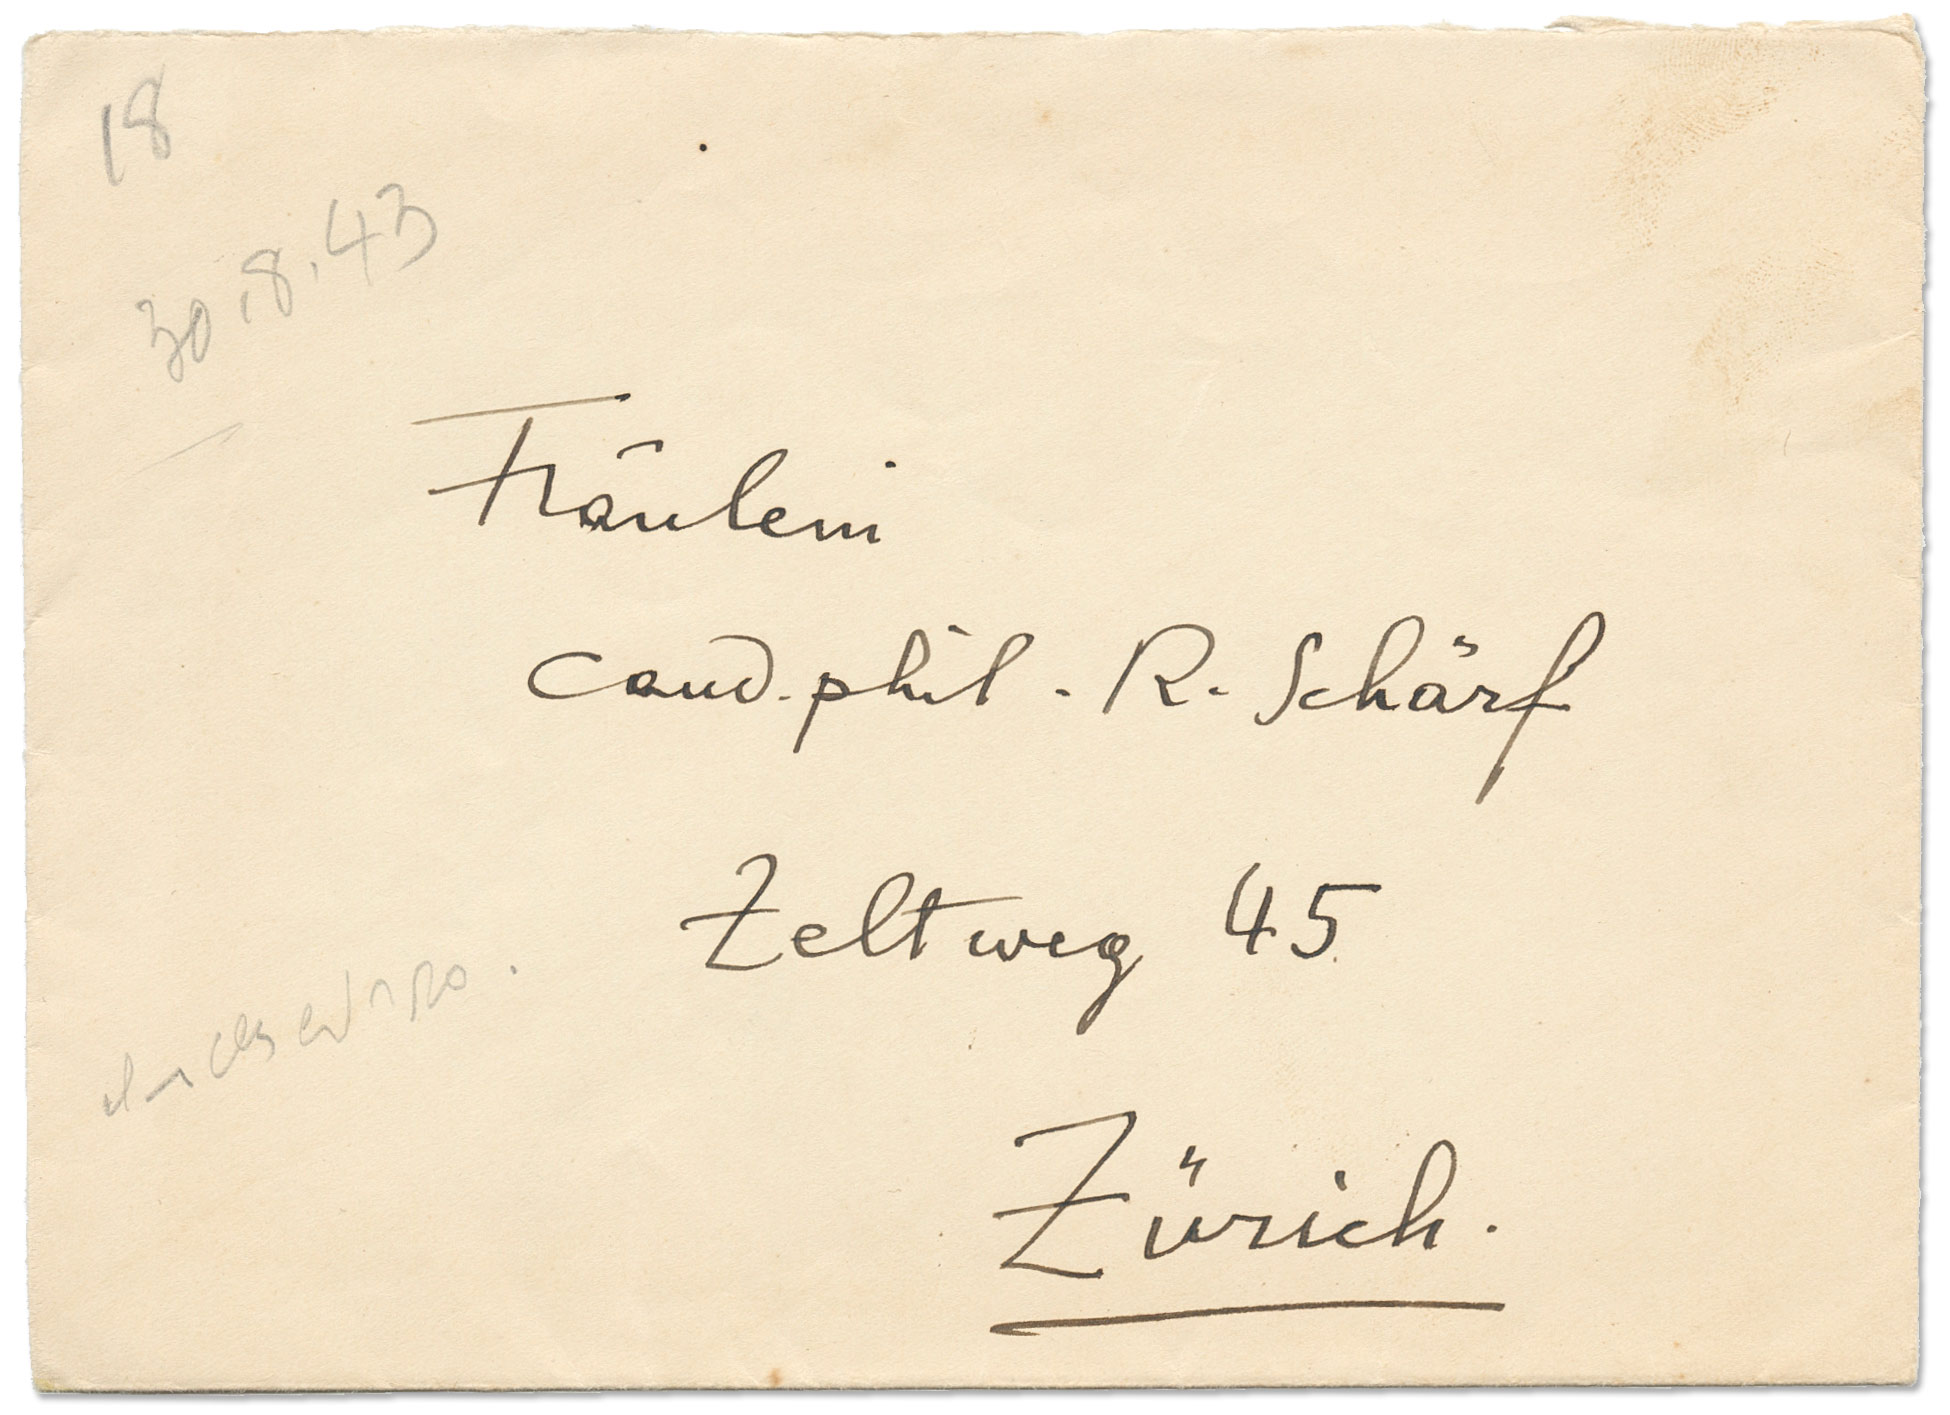 18
30.8.43
Fräulein
cand. phil. R. Schärf
Zeltweg 45
Zürich.